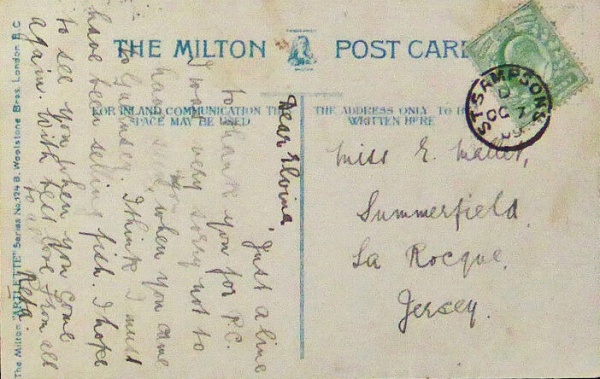 THE MILTON POST CARD
FOR INLAND COMMUNICATION THE
SPACE MAY BE USED
THE ADDRESS ONLY TO BE
WRITTEN HERE
The Milton "ARTLETTE" Series No. 124 B. Woolstone Bros. London E.C
Dear Elvina, Just a line
to thank you for P.C.
I was very sorry not to
have seen you when you came
to Guernsey. I think I must
have been selling fish. I hope
to see you when you come
again. With best love from all
to all
Reta.
Miss E. Mallet,
Summerfield
La Rocque.
Jersey.
ST SAMPSONS
D
OC 7
09